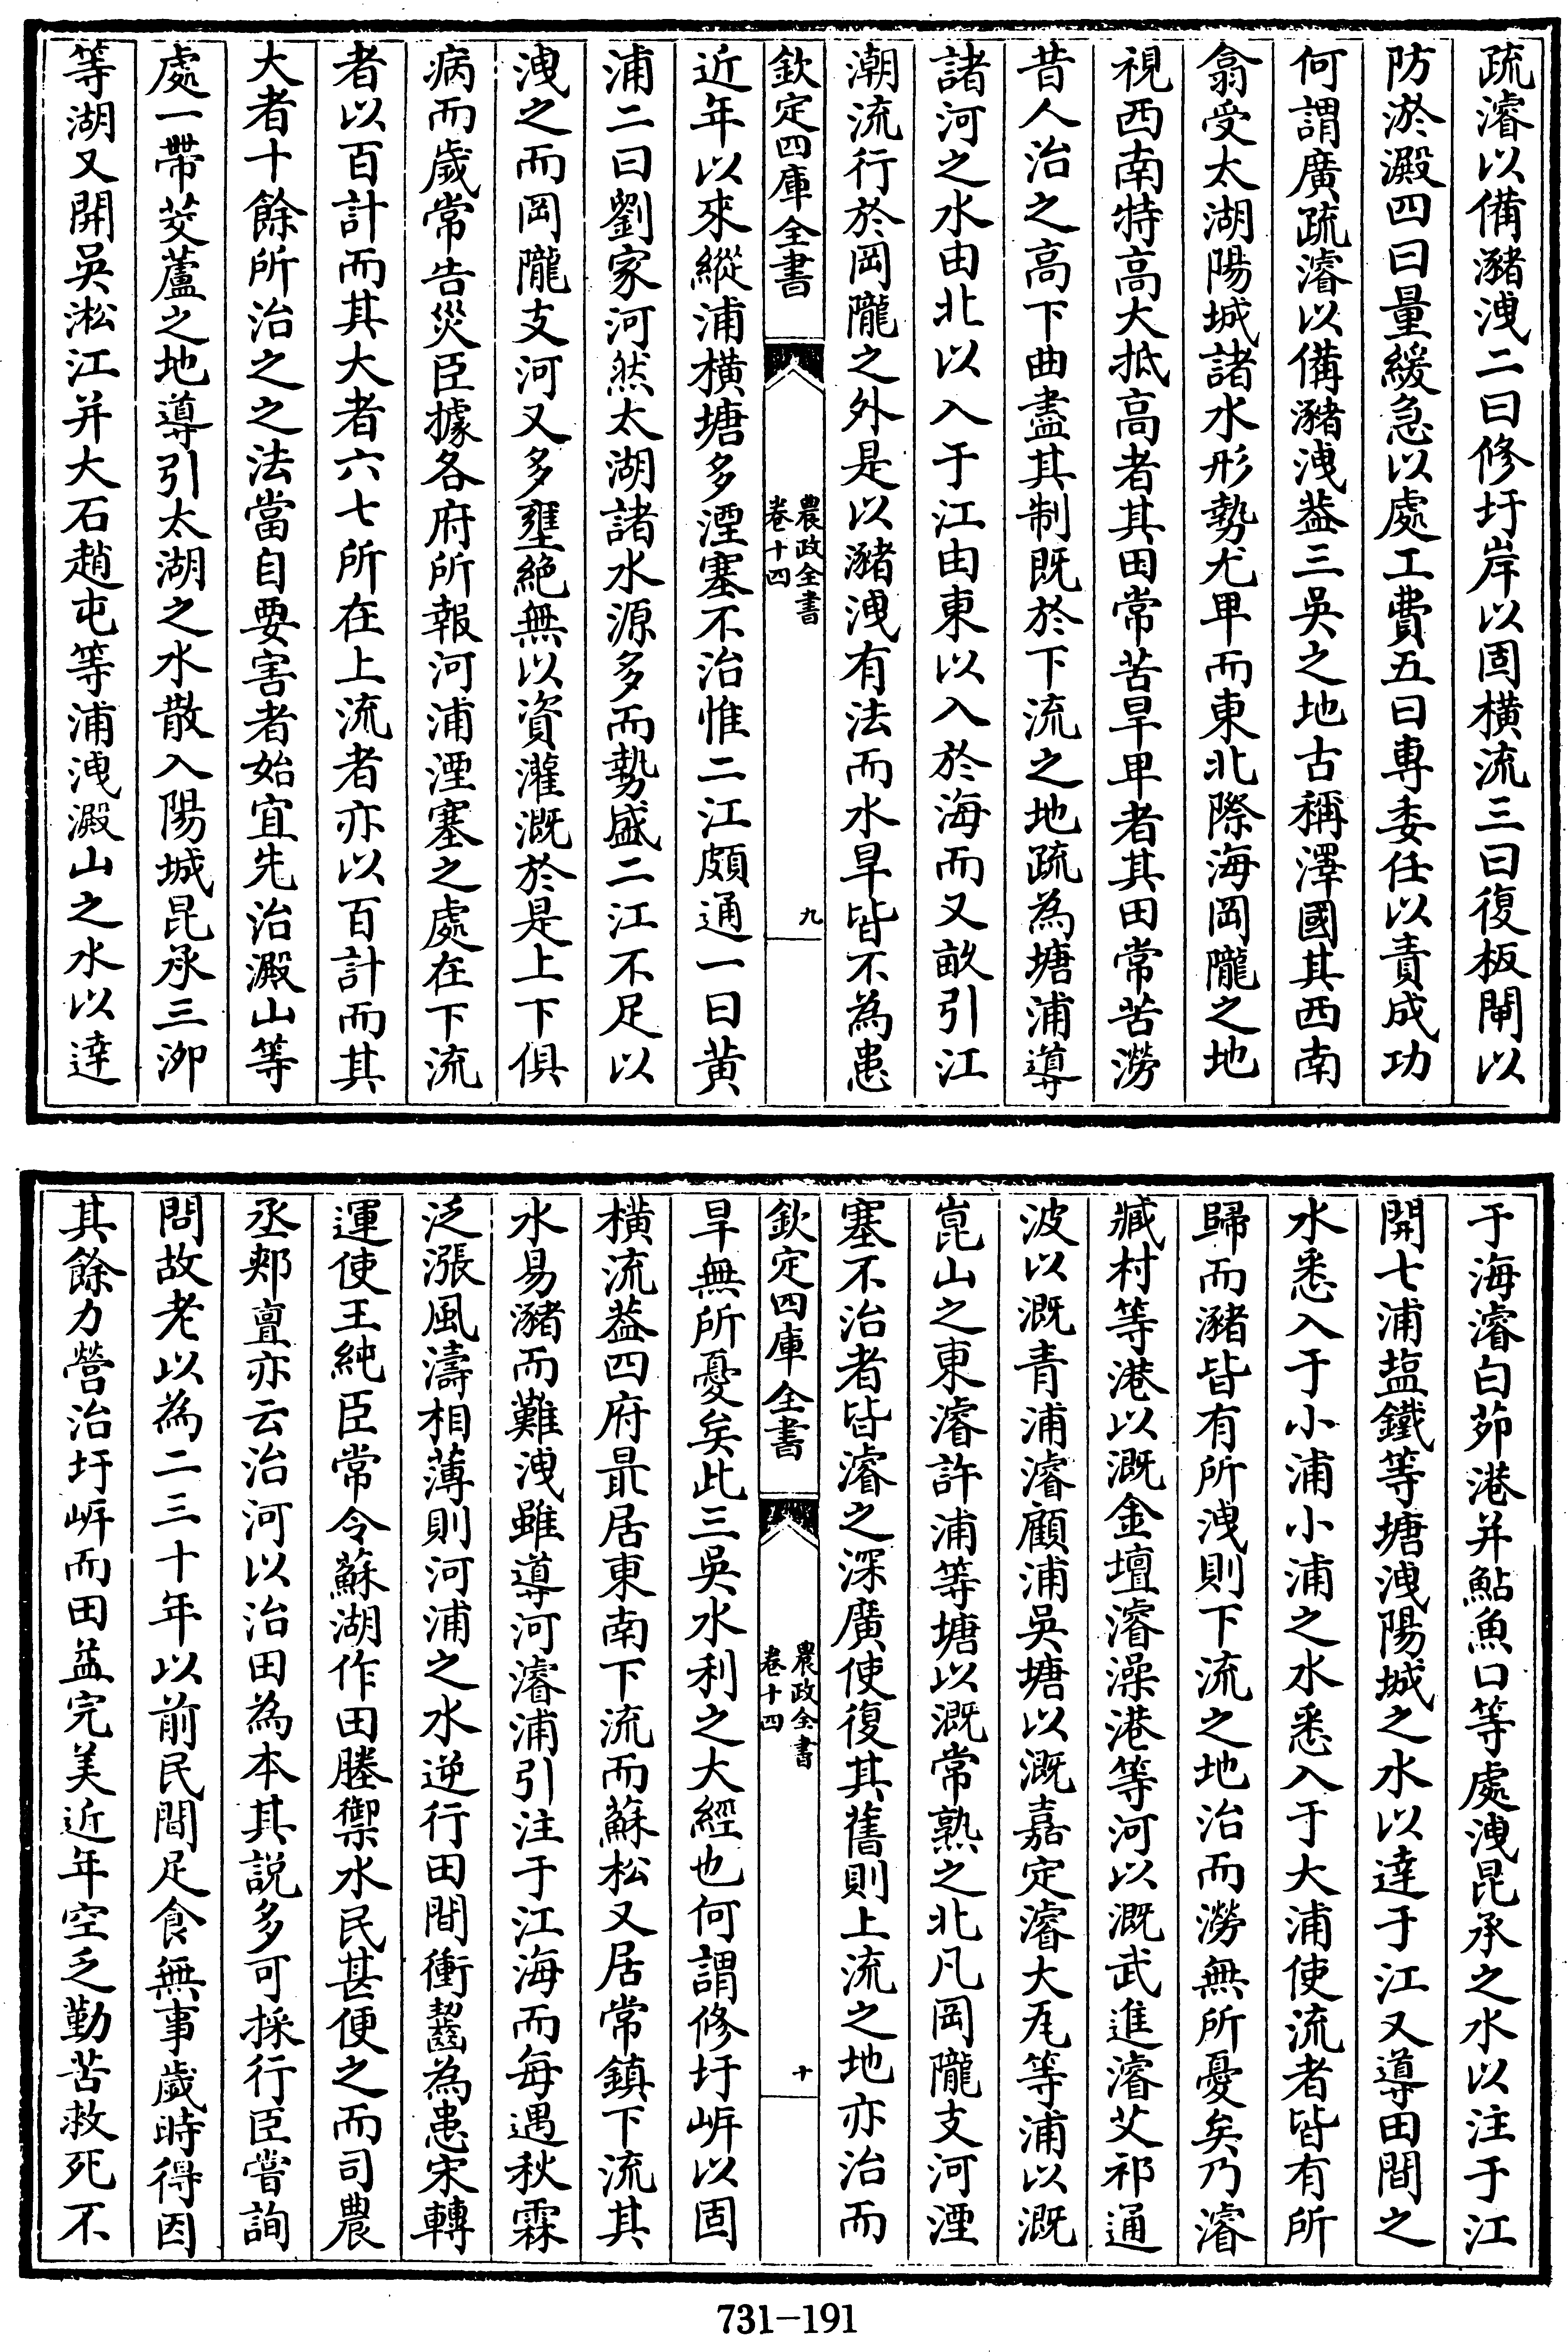 疏濬以備瀦洩二曰修圩岸以固横流三曰復板閘以
防淤澱四曰量緩急以處工費五曰專委任以責成功
何謂廣疏濬以備瀦洩葢三吳之地古稱澤國其西南
翕受太湖陽城諸水形勢尤卑而東北際海岡隴之地
視西南特高大抵高者其田常苦旱卑者其田常苦澇
昔人治之高下曲盡其制既於下流之地疏為塘浦導
諸河之水由北以入于江由東以入於海而又畝引江
潮流行於岡隴之外是以瀦洩有法而水旱皆不為患
欽定四庫全書
農政全書
卷十四
九
近年以來縱浦横塘多湮塞不治惟二江頗通一曰黄
浦二曰劉家河然太湖諸水源多而勢盛二江不足以
洩之而岡隴支河又多壅絶無以資灌溉於是上下俱
病而歲常告災臣據各府所報河浦湮塞之處在下流
者以百計而其大者六七所在上流者亦以百計而其
大者十餘所治之之法當自要害者始宜先治澱山等
處一帶茭蘆之地導引太湖之水散入陽城昆承三泖
等湖又開吳淞江并大石趙屯等浦洩澱山之水以逹
于海濬白茆港并鮎魚口等處洩昆承之水以注于江
開七浦塩鐵等塘洩陽城之水以逹于江又導田間之
水悉入于小浦小浦之水悉入于大浦使流者皆有所
歸而瀦皆有所洩則下流之地治而澇無所憂矣乃濬
臧村等港以溉金壇濬澡港等河以溉武進濬艾祁通
波以溉青浦濬顧浦吳塘以溉嘉定濬大瓦等浦以溉
崑山之東濬許浦等塘以溉常熟之北凡岡隴支河湮
塞不治者皆濬之深廣使復其舊則上流之地亦治而
欽定四庫全書
農政全書
卷十四
十
旱無所憂矣此三吳水利之大經也何謂修圩岸以固
横流葢四府最居東南下流而蘇松又居常鎮下流其
水易瀦而難洩雖導河濬浦引注于江海而每遇秋霖
泛漲風濤相薄則河浦之水逆行田間衝齧為患宋轉
運使王純臣常令蘇湖作田塍禦水民甚便之而司農
丞郟亶亦云治河以治田為本其説多可採行臣嘗詢
問故老以為二三十年以前民間足食無事歲時得因
其餘力營治圩岸而田益完美近年空乏勤苦救死不
731-191